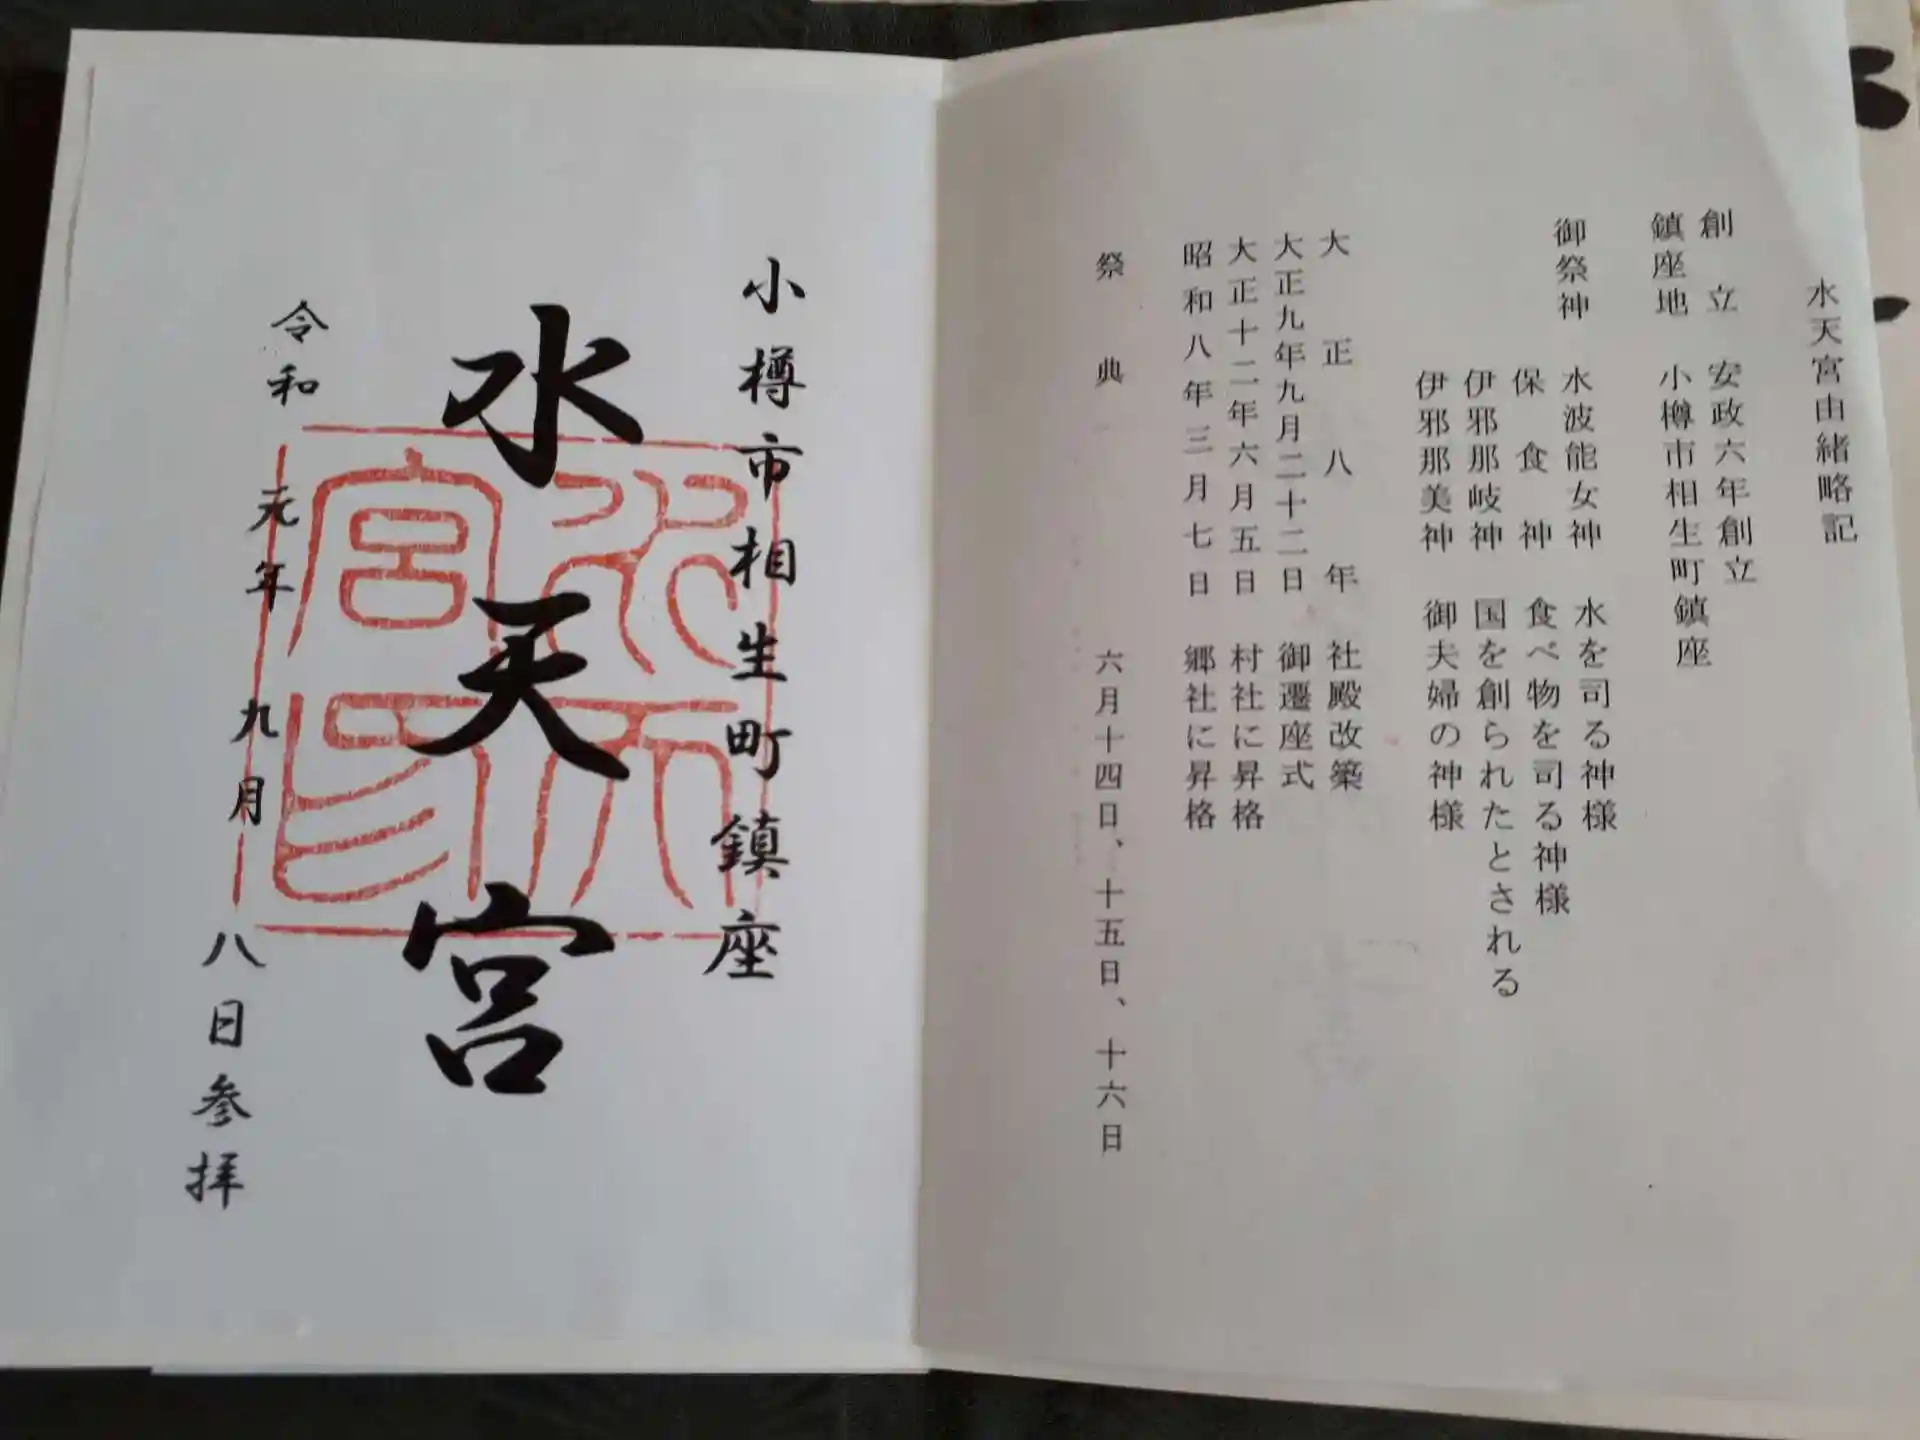 水天宮由緒略記
創立 安政六年創立
鎮座地 小樽市相生町鎮座
御祭神 水波能女神 水を司る神様
保食神 食べ物を司る神様
伊邪那岐神 国を創られたとされる
伊邪那美神 御夫婦の神様
大正八年 社殿改築
大正九年九月二十二日 御遷座式
大正十二年六月五日 村社に昇格
昭和八年三月七日 郷社に昇格
祭典 六月十四日、十五日、十六日
小樽市相生町鎮座
水天宮
令和元年九月八日参拝
水天宮印